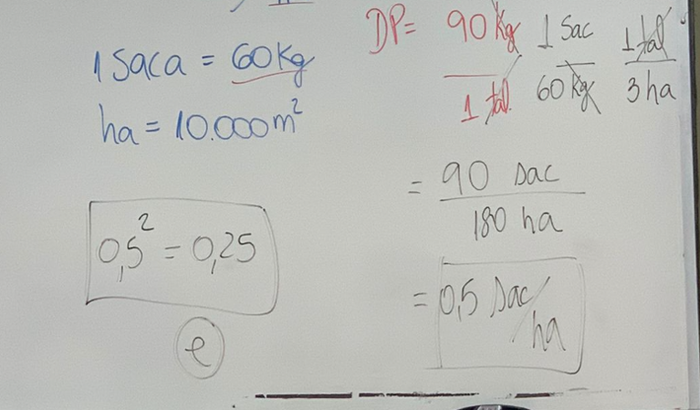 1 Saca = 60 Kg
ha = 10.000 m²
0,5² = 0,25
e
DP = 90 Kg / 1 tal. 1 Sac / 60 Kg 1 tal / 3 ha
= 90 sac / 180 ha
= 0,5 sac/ha